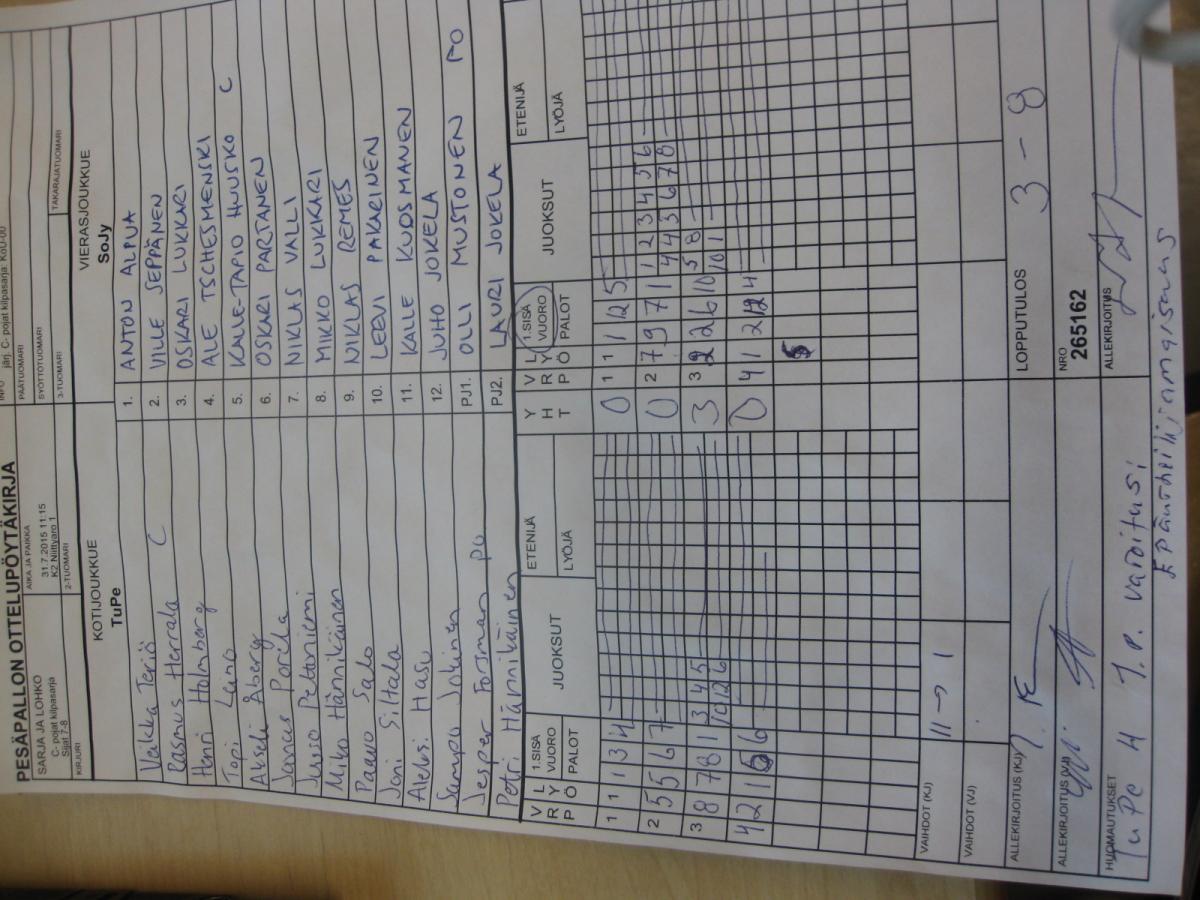 PESÄPALLON OTTELUPÖYTÄKIRJA
INFO järj. C- pojat kilpasarja: KoU-00
SARJA JA LOHKO
C- pojat kilpasarja
Sijat 7-8
AIKA JA PAIKKA
31.7.2015 11:15
K2 Niittyaro 1
PÄÄTUOMARI
SYÖTTÖTUOMARI
KIRJURI
2-TUOMARI
3-TUOMARI
TAKARAJATUOMARI
KOTIJOUKKUE
TuPe
VIERASJOUKKUE
SoJy
Veikka Teriö 1. ANTON ALPUA
Rasmus Herrala C 2. VILLE SEPPÄNEN
Henri Holmberg 3. OSKARI LUKKARI
Topi Leino 4. ALE TSCHESMENSKI
Akseli Åberg 5. KALLE-TAPIO HUUSKO C
Porila 6. OSKARI PARTANEN
Peltoniemi 7. NIKLAS VALLI
Miko Hännikäinen 8. MIKKO LUKKARI
Paavo Salo 9. NIKLAS REMES
Joni Siltala 10. LEEVI PAKARINEN
Aleksi Hasu 11. KALLE KUOSMANEN
Sampo Jokinen 12. JUHO JOKELA
Jesper Forsman po PJ1. OLLI MUSTONEN PO
Petri Hännikäinen PJ2. LAURI JOKELA
VRP LYÖ 1.SISÄ VUORO PALOT JUOKSUT ETENIJÄ LYÖJÄ YHT VRP LYÖ 1.SISÄ VUORO PALOT JUOKSUT ETENIJÄ LYÖJÄ
1 1 1 3 4 0 1 1 1 2 5
2 5 5 6 7 0 2 7 9 7 1 1 2 3 4 5 6
4 4 3 6 7 8
3 8 7 8 1 3 4 5 3 3 2 2 6 10 5 8
10 12 6 10 1
4 2 1 6 0 4 1 2 12 4
VAIHDOT (KJ) 11 → 1
VAIHDOT (VJ)
ALLEKIRJOITUS (KJ) LOPPUTULOS 3 - 8
ALLEKIRJOITUS (VJ) NRO 265162
HUOMAUTUKSET ALLEKIRJOITUS
TuPe 4 J.P. varoitus:
Epäurheilijanmaisuus